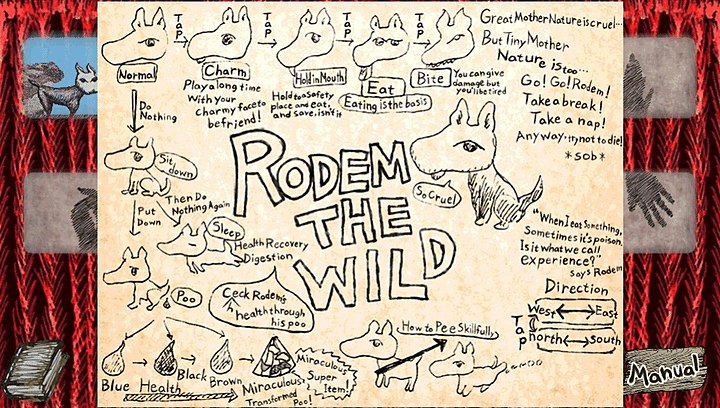 Tap
Tap
Tap
Tap
Normal
Charm
Hold in Mouth
Eat
Bite
Play a long time
With your
charmy face to
befriend!
Hold to a Safety
place and eat,
and save, isn't it
Eating is the basis
You can give
damage but
you'll be tired
Great Mother Nature is cruel...
But Tiny Mother
Nature is too...
Go! Go! Rodem!
Take a break!
Take a nap!
Anyway, try not to die!
*sob*
Do
Nothing
Sit
down
Then Do
Nothing Again
Put
Down
Sleep
Health Recovery
Digestion
Poo
Ceck Rodem's
health through
his poo
RODEM
THE
WILD
So Cruel
"When I eat Something,
Sometimes it's poison.
Is it what we call
experience?"
says Rodem
Direction
West East
Tap
north South
How to Pee Skillfully
Blue Health Black Brown
Miraculous
Transformed
Poo!
Miraculous
Super
Item!
Manual